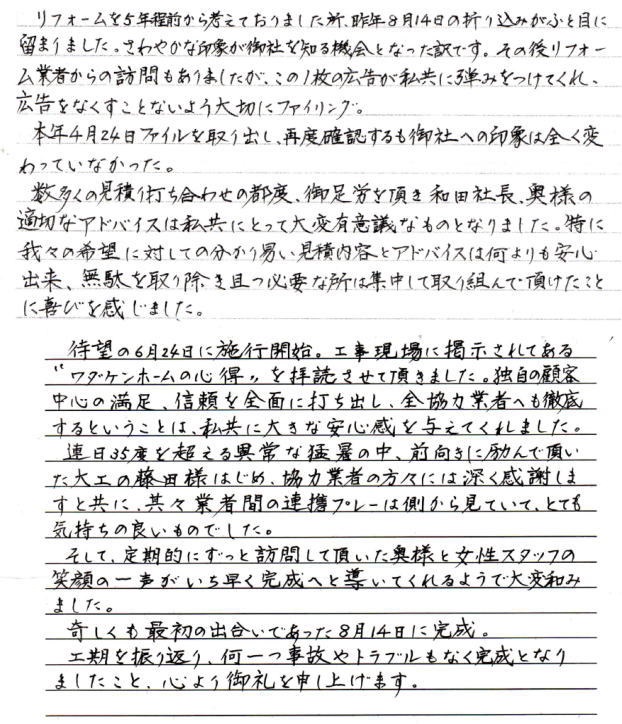 リフォームを5年程前から考えておりました所、昨年8月14日の折り込みがふと目に
留まりました。さわやかな印象が御社を知る機会となった訳です。その後リフォー
ム業者からの訪問もありましたが、この1枚の広告が私共に弾みをつけてくれ、
広告をなくすことないよう大切にファイリング。
本年4月24日ファイルを取り出し、再度確認するも御社への印象は全く変
わっていなかった。
数多くの見積り打ち合わせの都度、御足労を頂き和田社長、奥様の
適切なアドバイスは私共にとって大変有意議なものとなりました。特に
我々の希望に対しての分かり易い見積内容とアドバイスは何よりも安心
出来、無駄を取り除き且つ必要な所は集中して取り組んで頂けたこと
に喜びを感じました。
待望の6月24日に施行開始。工事現場に掲示されてある
"ワダケンホームの心得"を拝読させて頂きました。独自の顧客
中心の満足、信頼を全面に打ち出し、全協力業者へも徹底
するということは、私共に大きな安心感を与えてくれました。
連日35度を超える異常な猛暑の中、前向きに励んで頂い
た大工の藤田様はじめ、協力業者の方々には深く感謝しま
すと共に、其々業者間の連携プレーは側から見ていて、とても
気持ちの良いものでした。
そして、定期的にずっと訪問して頂いた奥様と女性スタッフの
笑顔の一声がいち早く完成へと導いてくれるようで大変和み
ました。
奇しくも最初の出合いであった8月14日に完成。
工期を振り返り、何一つ事故やトラブルもなく完成となり
ましたこと、心より御礼を申し上げます。